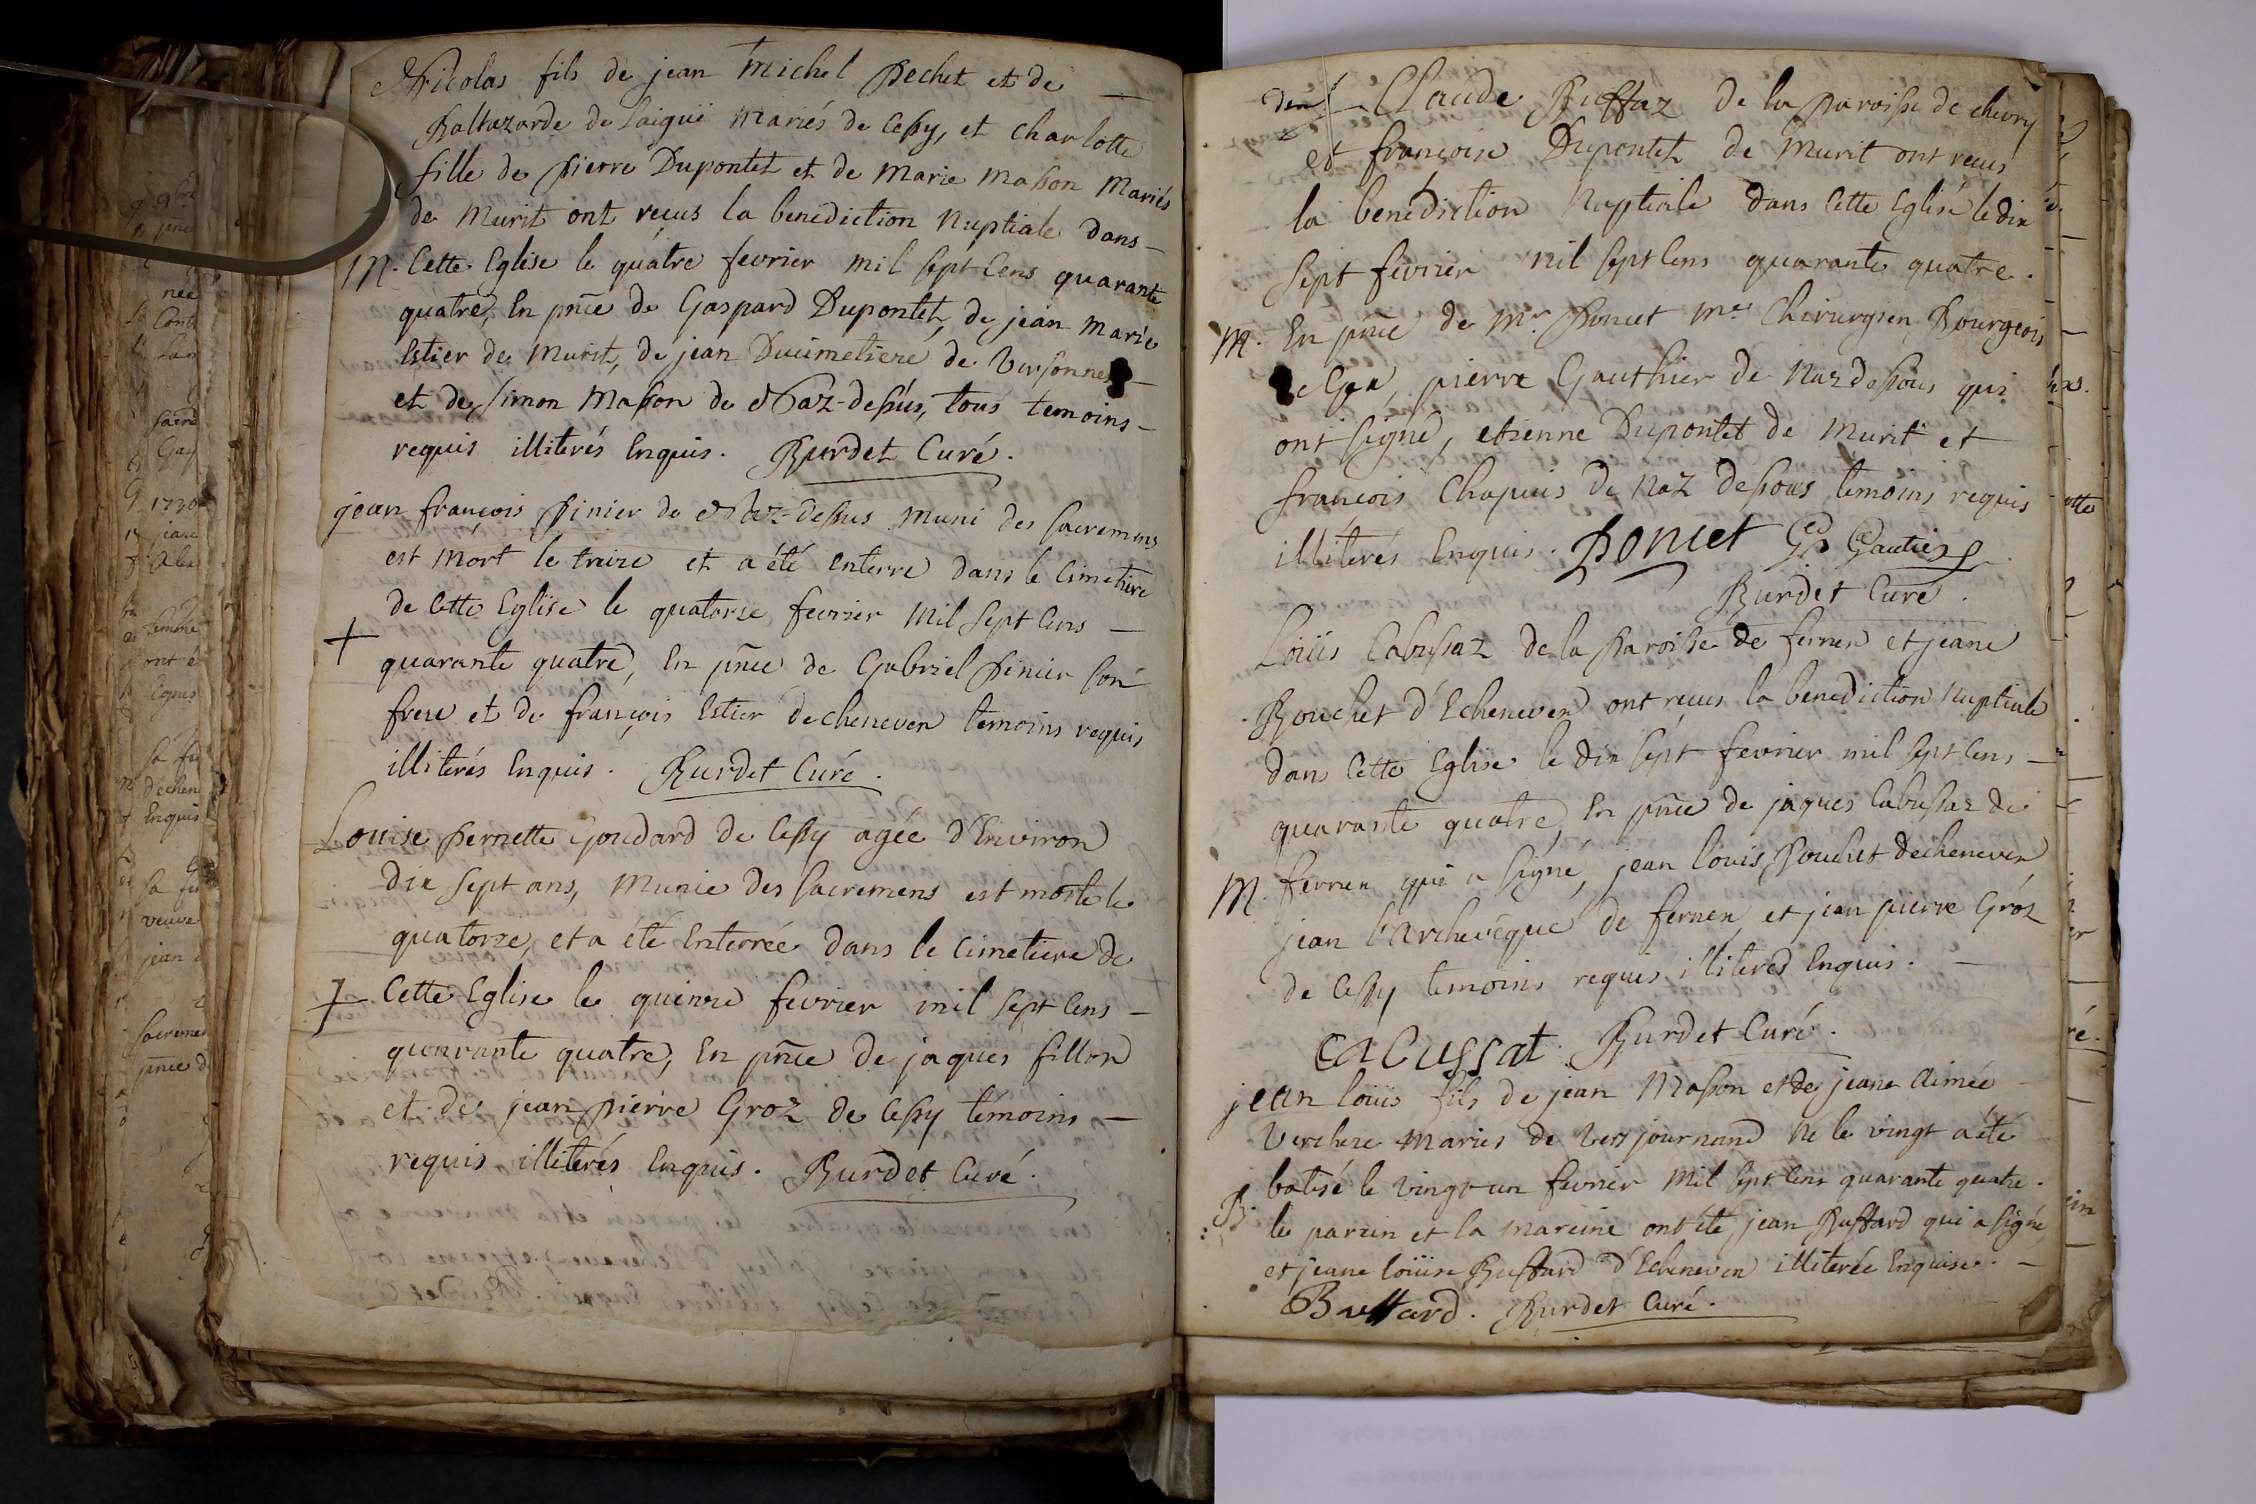 Nicolas fils de jean Michel Pechet et de —
Baltazarde de Laigue Mariés de Cessy, et charlotte
fille de pierre Dupontet et de Marie Masson Mariés
de Murit ont reçus la benediction Nuptiale dans —
M. Cette Eglise le quatre fevrier mil sept Cens quarante
quatre, En pñce de Gaspard Dupontet, de jean Marie
Estier de Murit, de jean Ducimetiere de Versonnex —
et de Simon Masson de Naz-dessus, tous temoins —
requis illiterés Enquis. Burdet Curé.
jean françois Pinier de Naz-dessus Muni des sacremens
est Mort le treize et a été Enterré dans le Cimetiere
de Cette Eglise le quatorze fevrier Mil Sept Cens —
+ quarante quatre, En pñce de Gabriel Pinier son
frere et de françois Estier decheneven temoins requis
illiterés Enquis. Burdet Curé.
Louise Pernette Goudard de Cessy agée d'Environ
dix sept ans, Munie des sacremens est morte le
quatorze, et a été Enterrée dans le Cimetiere de
+ Cette Eglise le quinze fevrier mil sept Cens —
quarante quatre, En pñce de jaques fillon
et de jean pierre Groz de Cessy témoins —
requis illiterés Enquis. Burdet Curé.
Claude Buffaz de la Paroisse de chevry
et françoise Dupontet de Murit ont recus
la benediction Nuptiale dans Cette Eglise le dix
sept fevrier mil sept Cens quarante quatre.
M. En pñce de Mr. Poncet Me. Chirurgien Bourgeois
de Gex, pierre Gauthier de Naz dessous qui
ont signé, etienne Dupontet de Murit et
francois Chapuis de Naz dessous temoins requis
illiterés Enquis. Poncet Gautier
Burdet Curé.
Loüis Cabussaz de la Paroisse de fernex et jeane
Bouchet d'Echeneven ont reçus la benediction Nuptiale
dans Cette Eglise le dix sept fevrier mil sept Cens —
quarante quatre, En pñce de jaques Cabussaz de
M. fernex qui a signé, jean Louis Bouchet decheneven
jean l'Archevêque de fernex, et jean pierre Gróz
de Cessy temoins requis illiterés Enquis. —
Cacussat. Burdet Curé.
jean loüis fils de jean Masson et de jeane Aimée
Verchere Mariés de Versjournand Né le vingt a été
batisé le vingt un fevrier Mil Sept Cens quarante quatre.
B. le parein et la mareine ont été jean Buffard qui a signé,
et jeane loüise Buffard d'Echeneven illiterée Enquise. —
Buffard. Burdet Curé.